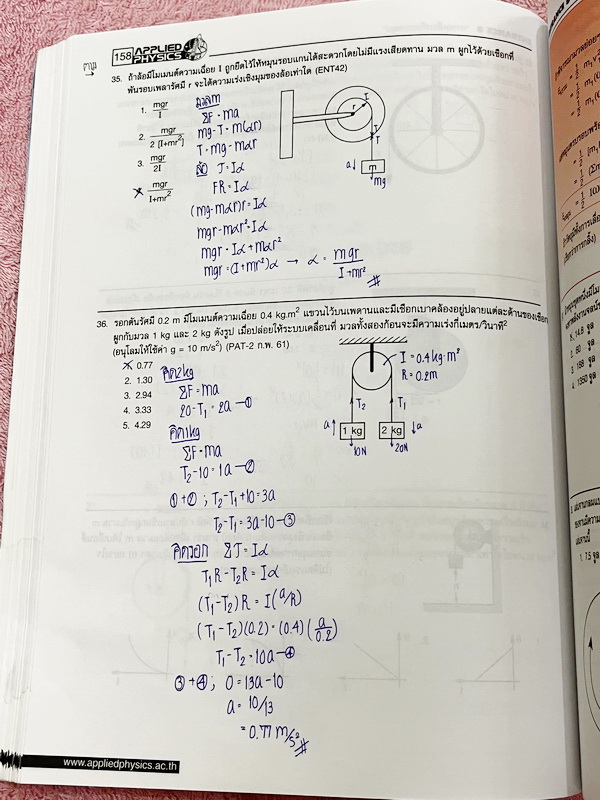 158 APPLIED PHYSICS
35. ถ้าล้อมีโมเมนต์ความเฉื่อย I ถูกยึดไว้ให้หมุนรอบแกนได้สะดวกโดยไม่มีแรงเสียดทาน มวล m ผูกไว้ด้วยเชือกที่
พันรอบเพลารัศมี r จะได้ความเร่งเชิงมุมของล้อเท่าใด (ENT42)
1. mgr/I
2. mgr/2 [I+mr²]
3. mgr/2I
4. mgr/I+mr²
มวล m
ΣF = ma
mg - T = m(αr)
T = mg - mαr
ล้อ τ = Iα
FR = Iα
(mg - mαr)r = Iα
mgr - mαr² = Iα
mgr = Iα + mαr²
mgr = (I + mr²)α → α = mgr/I + mr² #
r I
T
T
a↓ m
mg
36. รอกตันรัศมี 0.2 m มีโมเมนต์ความเฉื่อย 0.4 kg.m² แขวนไว้บนเพดานและมีเชือกเบาคล้องอยู่ปลายแต่ละด้านของเชือก
ผูกกับมวล 1 kg และ 2 kg ดังรูป เมื่อปล่อยให้ระบบเคลื่อนที่ มวลทั้งสองก้อนจะมีความเร่งกี่เมตร/วินาที²
(อนุโลมให้ใช้ค่า g = 10 m/s²) (PAT-2 ก.พ. 61)
1. 0.77
2. 1.30
3. 2.94
4. 3.33
5. 4.29
คิด 2kg
ΣF = ma
20 - T₁ = 2a — ①
คิด 1kg
ΣF = ma
T₂ - 10 = 1a — ②
① + ② ; T₂ - T₁ + 10 = 3a
T₂ - T₁ = 3a - 10 — ③
คิดรอก Στ = Iα
T₁R - T₂R = Iα
(T₁ - T₂)R = I(a/R)
(T₁ - T₂)(0.2) = (0.4)(a/0.2)
T₁ - T₂ = 10a — ④
③ + ④ ; 0 = 13a - 10
a = 10/13
= 0.77 m/s² #
I = 0.4 kg·m²
R = 0.2m
T₂ T₁
a↑ 1 kg 2 kg ↓a
10N 20N
www.appliedphysics.ac.th